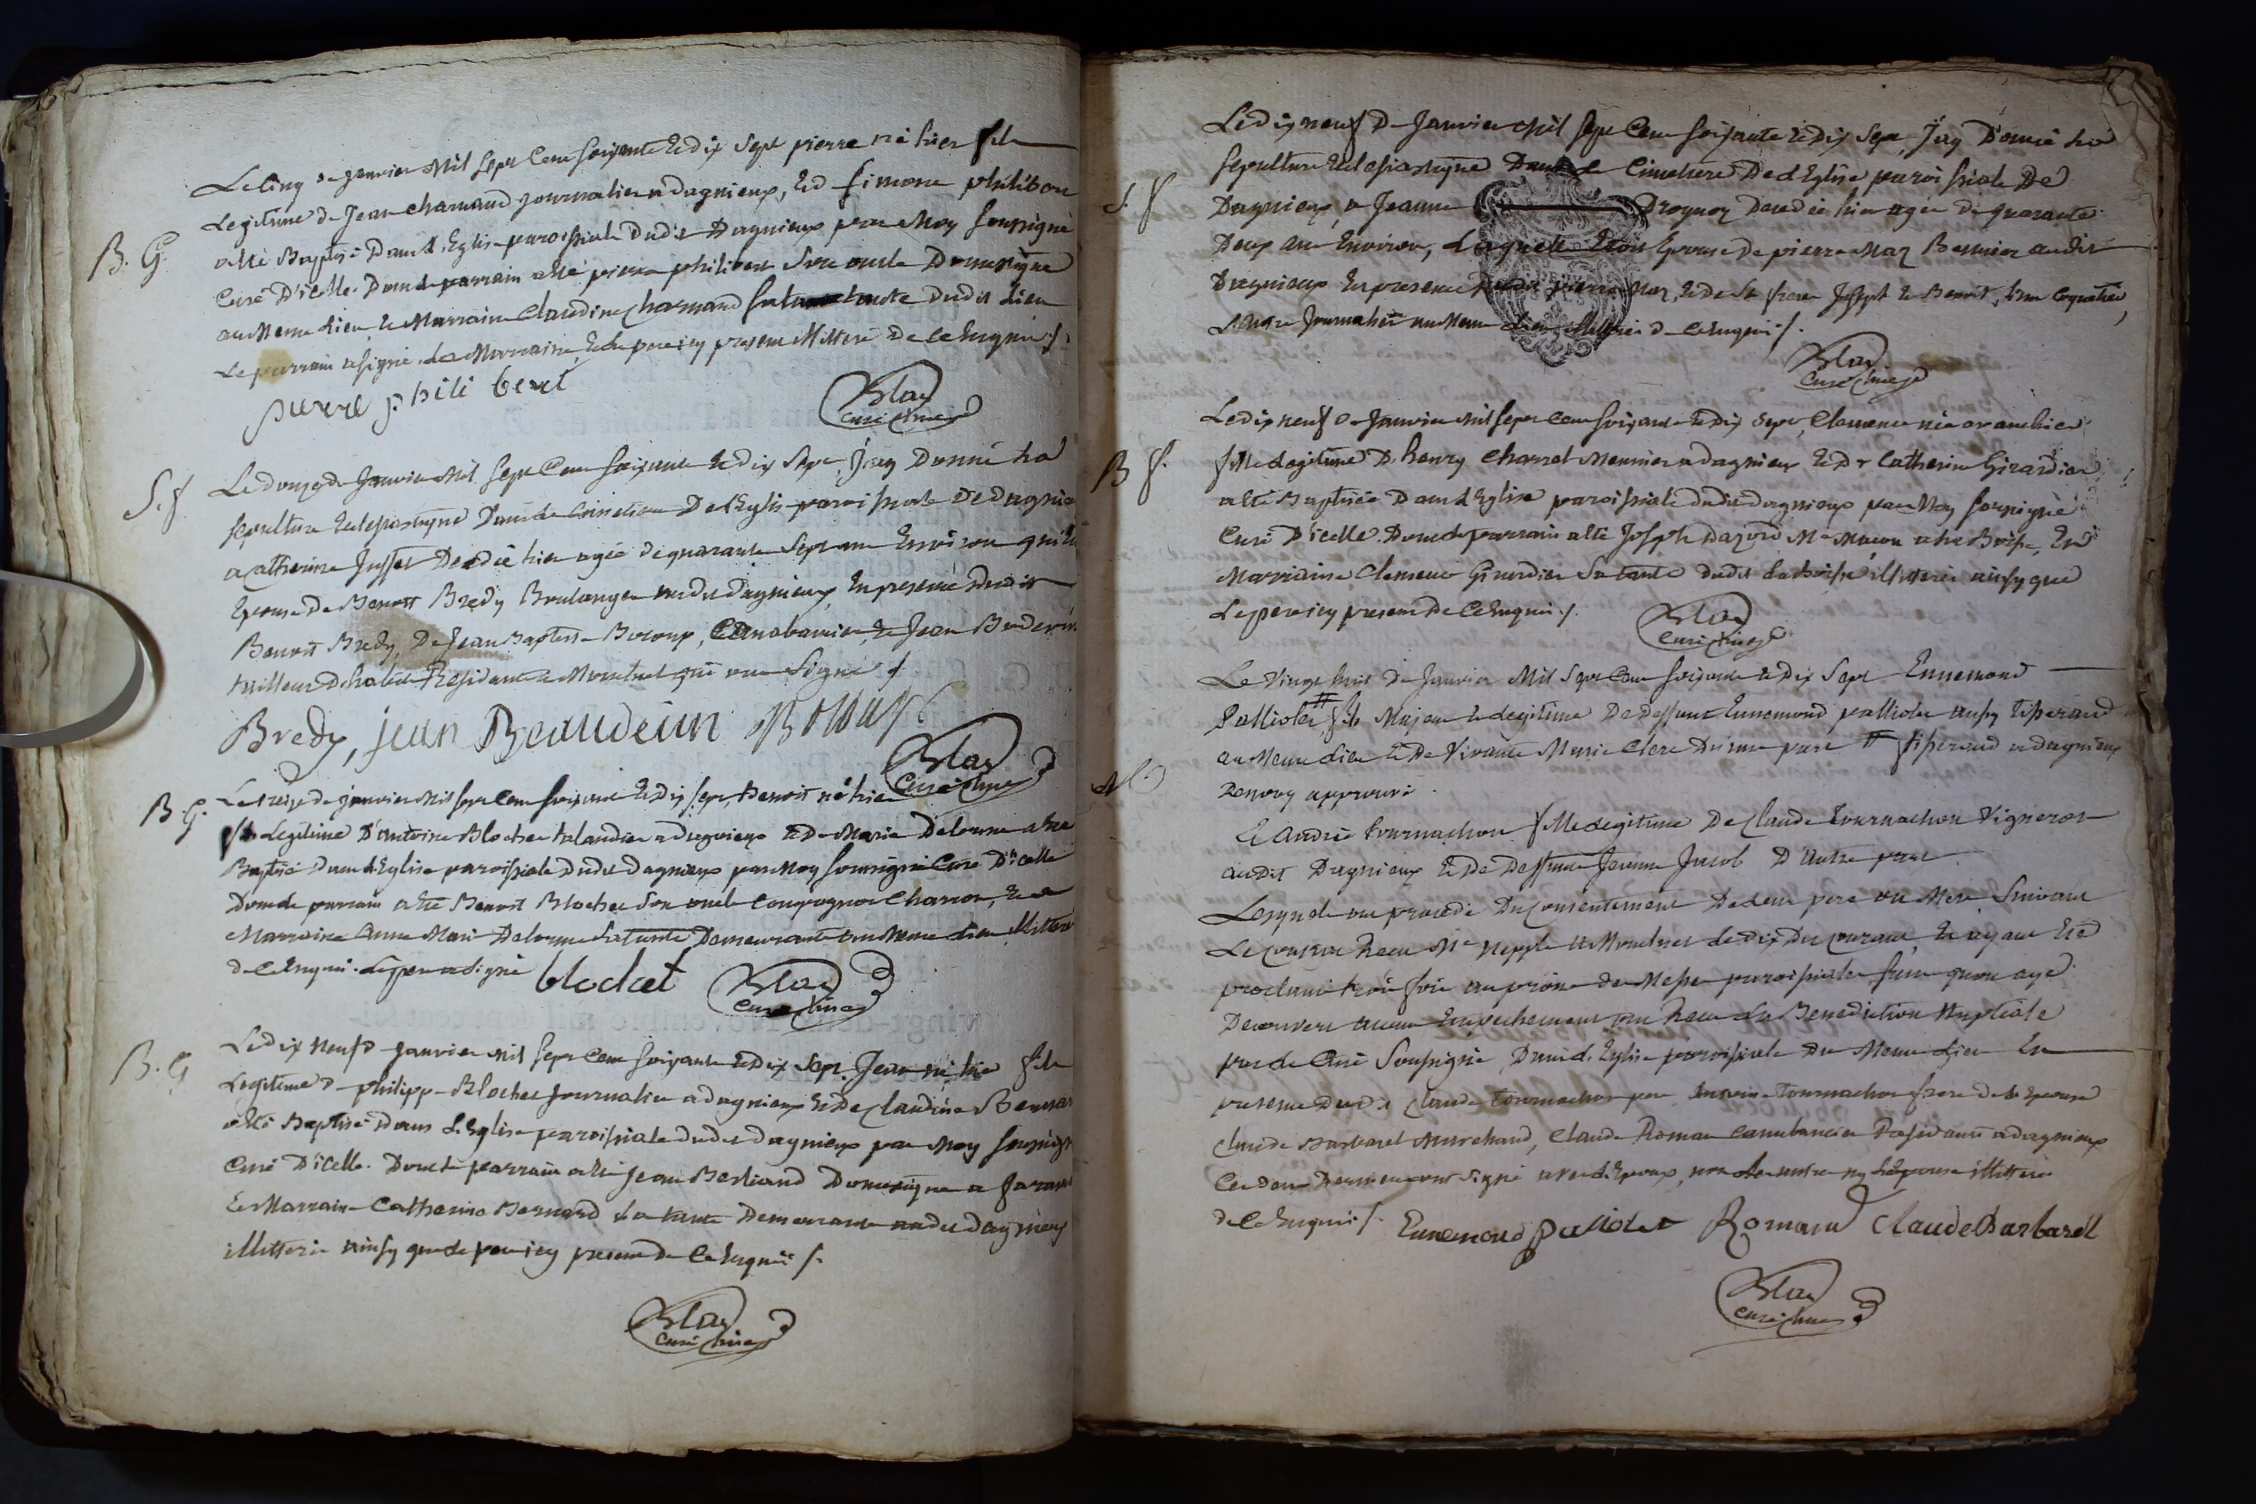 Le Cinq de janvier Mil Sept Cent soixante & dix Sept pierre né hier fils
Legitime de Jean charnaud journalier a dagnieux, Et d simone philibon
B. G.
a été Baptisé Dans L'Eglise paroissiale dudit Dagnieux par Moy soussigné
Curé D'icelle. Dont le parrain a été pierre philibert son oncle Domestique
au Meme Lieu, & Marraine Claudine Charnaud sa tante dudit Lieu
Le parrain a signé. La Marraine, & le pere icy present illitteré de ce Enquis /.
pierre phili bert
Blay
Curé
S. f
Le douze de Janvier Mil Sept Cent soixante & dix Sept, J'ay Donné la
sepulture Eclesiastique Dans le Cimetiere De L'Eglise paroissiale de dagnieux
a Catherine Jusset Decedée hier agée de quarante Sept ans Environ qui etoit
Epouse de Benoit Bredy Boulanger audit dagnieux, En presence dudit
Benoit Bredy, De Jean Baptiste Boroux, Canabassier, & Jean Buderin
tailleur D'habits Residants a Montluel qui ont Signé /
Bredy, jean Beaudeiun
Blay
Curé
B. G.
Le treize de janvier Mil sept Cent soixante & dix sept, Benoit né hier
fils Legitime D'Antoine Blochet talandier a dagnieux & De Marie Delorme a été
Baptisé Dans L'Eglise paroissiale dudit dagnieux par Moy soussigné Curé D'icelle
Dont le parrain a été Benoit Blochet Son oncle Compagnon Charron, & la
Marraine Anne Marie Delorme sa tante Demeurante au Meme Lieu illitteré
de ce Enquis. Le pere a signé blochet
Blay
Curé
B. G
Le dix Neuf d Janvier Mil Sept Cent soixante & Dix Sept, Jean né hier fils
Legitime d philippe Blochet Journalier a dagnieux & De Claudine Bernard
a été Baptisé Dans L'Eglise paroissiale dudit dagnieux par Moy soussigné
Curé D'icelle. Dont le parrain a été Jean Bertrand Domestique a
& Marraine Catherine Bernard sa tante Demeurante audit dagnieux
illitteré ainsy que le pere icy present de ce Enquis /.
Blay
Curé
Le dix neuf De Janvier Mil Sept Cent soixante & Dix Sept, J'ay Donné la
sepulture Eclesiastique Dans le Cimetiere De L'Eglise paroissiale De
S. f
Dagnieux, a Jeanne Droguoz Decedée hier agée de quarante
Deux ans Environ, Laquelle Etoit Epouse de pierre Maz Bessier audit
Dagnieux En presence dudit pierre Maz, & de Se freres Joseph & Benoit, L'un Coquetier,
L'autre Journalier au Meme Lieu, illitteré de ce Enquis /.
Blay
Curé
Le dix neuf d Janvier Mil Sept Cent soixante & dix Sept, Clemence née avant hier
B f.
fille Legitime D. henry Charrel Meunier a dagnieux & De Catherine Girardier
a été Baptisée Dans L'Eglise paroissiale dudit dagnieux par Moy soussigné
Curé D'icelle. Dont le parrain a été Joseph Me Maçon a la Boisse, Et
Marraine Clemence Girardier Sa tante dudit La boisse illitteré ainsy que
Le pere icy present de ce Enquis /.
Blay
Curé
Le Vingt huit De Janvier Mil Sept Cent soixante & Dix Sept Ennemond
Palliotet # fils Majeur & Legitime De Deffunt Ennemond palliotet
au Meme Lieu & De Vivante Marie Clere D'une part # a dagnieux
Renvoy approuvé.
Et Andrée tournachon fille Legitime De Claude tournachon Vigneron
audit Dagnieux & De Deffunte Jeanne Jacob D'Autre part
Lesquels ont procedé Du Consentement De leur pere ou Mere Suivant
Le Contrat Receu Me a Montluel Le Dix Du Courant, & ayant Eté
proclamé trois fois au prone de Messe paroissiale sans qu'on aye
Decouvert aucun Empechement ont Receu La Benediction Nuptiale
par Le Curé Soussigné, Dans L'Eglise paroissiale Du Meme Lieu En
presence Dudit Claude tournachon pere, Antoine tournachon frere de L'Epouse
Claude Barbarel Marchand, Claude Roman Canabassier Residants a dagnieux
Ces deux Derniers ont signé avec L'Epoux, non Les autres ny L'Epouse illitteré
de ce Enquis /. Ennemond Palliotet Romand Claude Barbarel
Blay
Curé